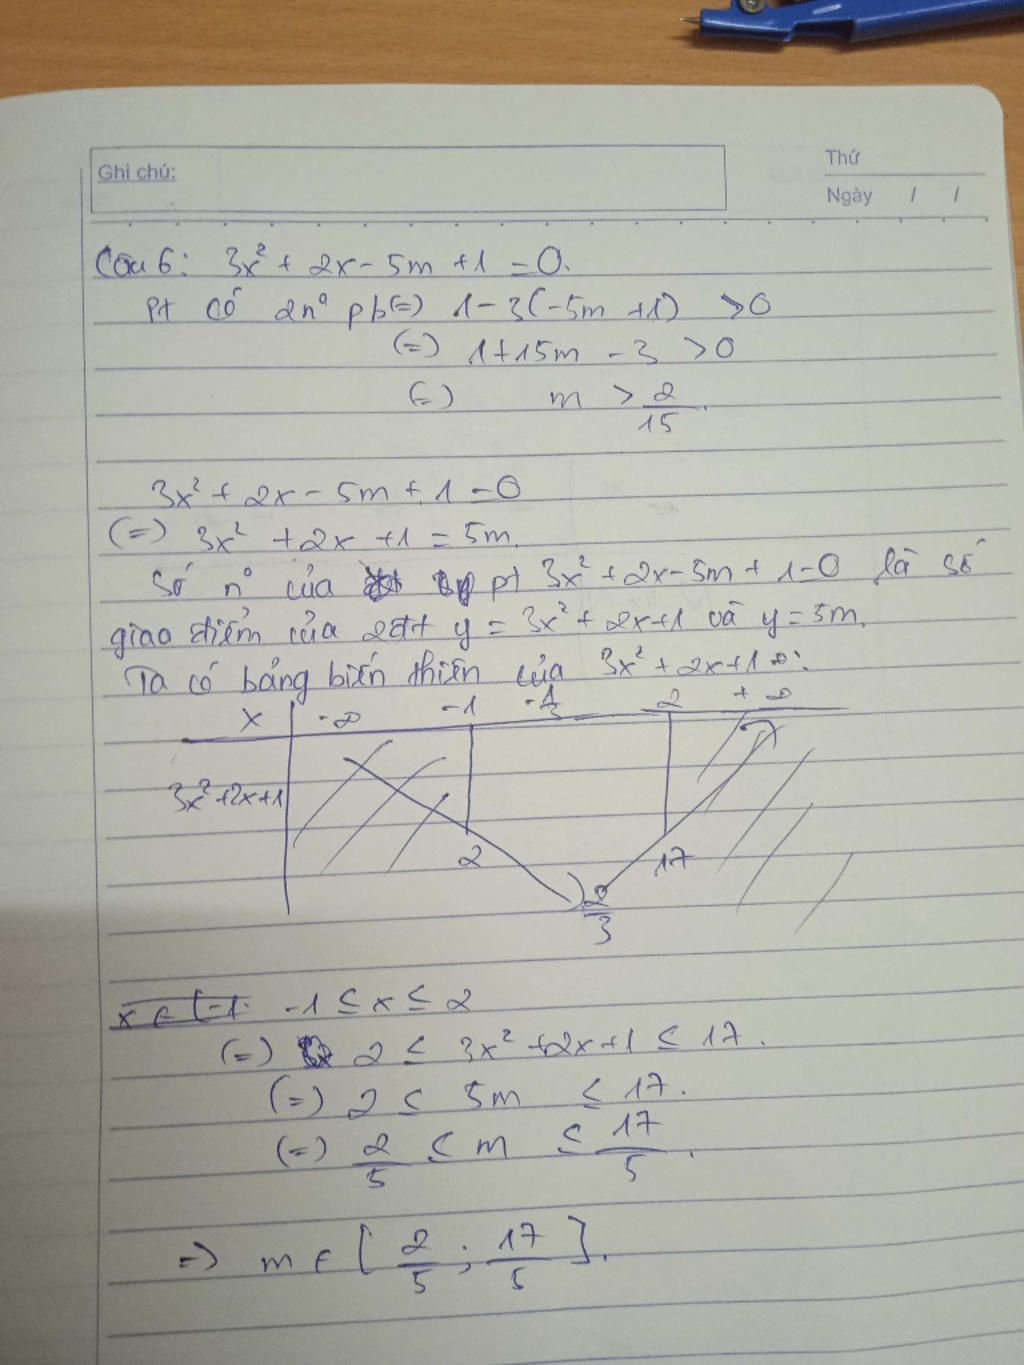 Ghi chú:
Thứ
Ngày / /
Câu 6: 3x² + 2x - 5m + 1 = 0.
Pt có 2n° pb (=) 1 - 3(-5m + 1) > 0
(=) 1 + 15m - 3 > 0
(=) m > 2/15.
3x² + 2x - 5m + 1 = 0
(=) 3x² + 2x + 1 = 5m.
Số n° của pt 3x² + 2x - 5m + 1 = 0 là số
giao điểm của 2đt y = 3x² + 2x + 1 và y = 5m.
Ta có bảng biến thiên của 3x² + 2x + 1 :
x -∞ -1 -1/3 2 +∞
3x² + 2x + 1
2 17
2/3
x ∈ [-1. -1 ≤ x ≤ 2
(=) 2 ≤ 3x² + 2x + 1 ≤ 17.
(=) 2 ≤ 5m ≤ 17.
(=) 2/5 ≤ m ≤ 17/5.
=> m ∈ [2/5 ; 17/5].